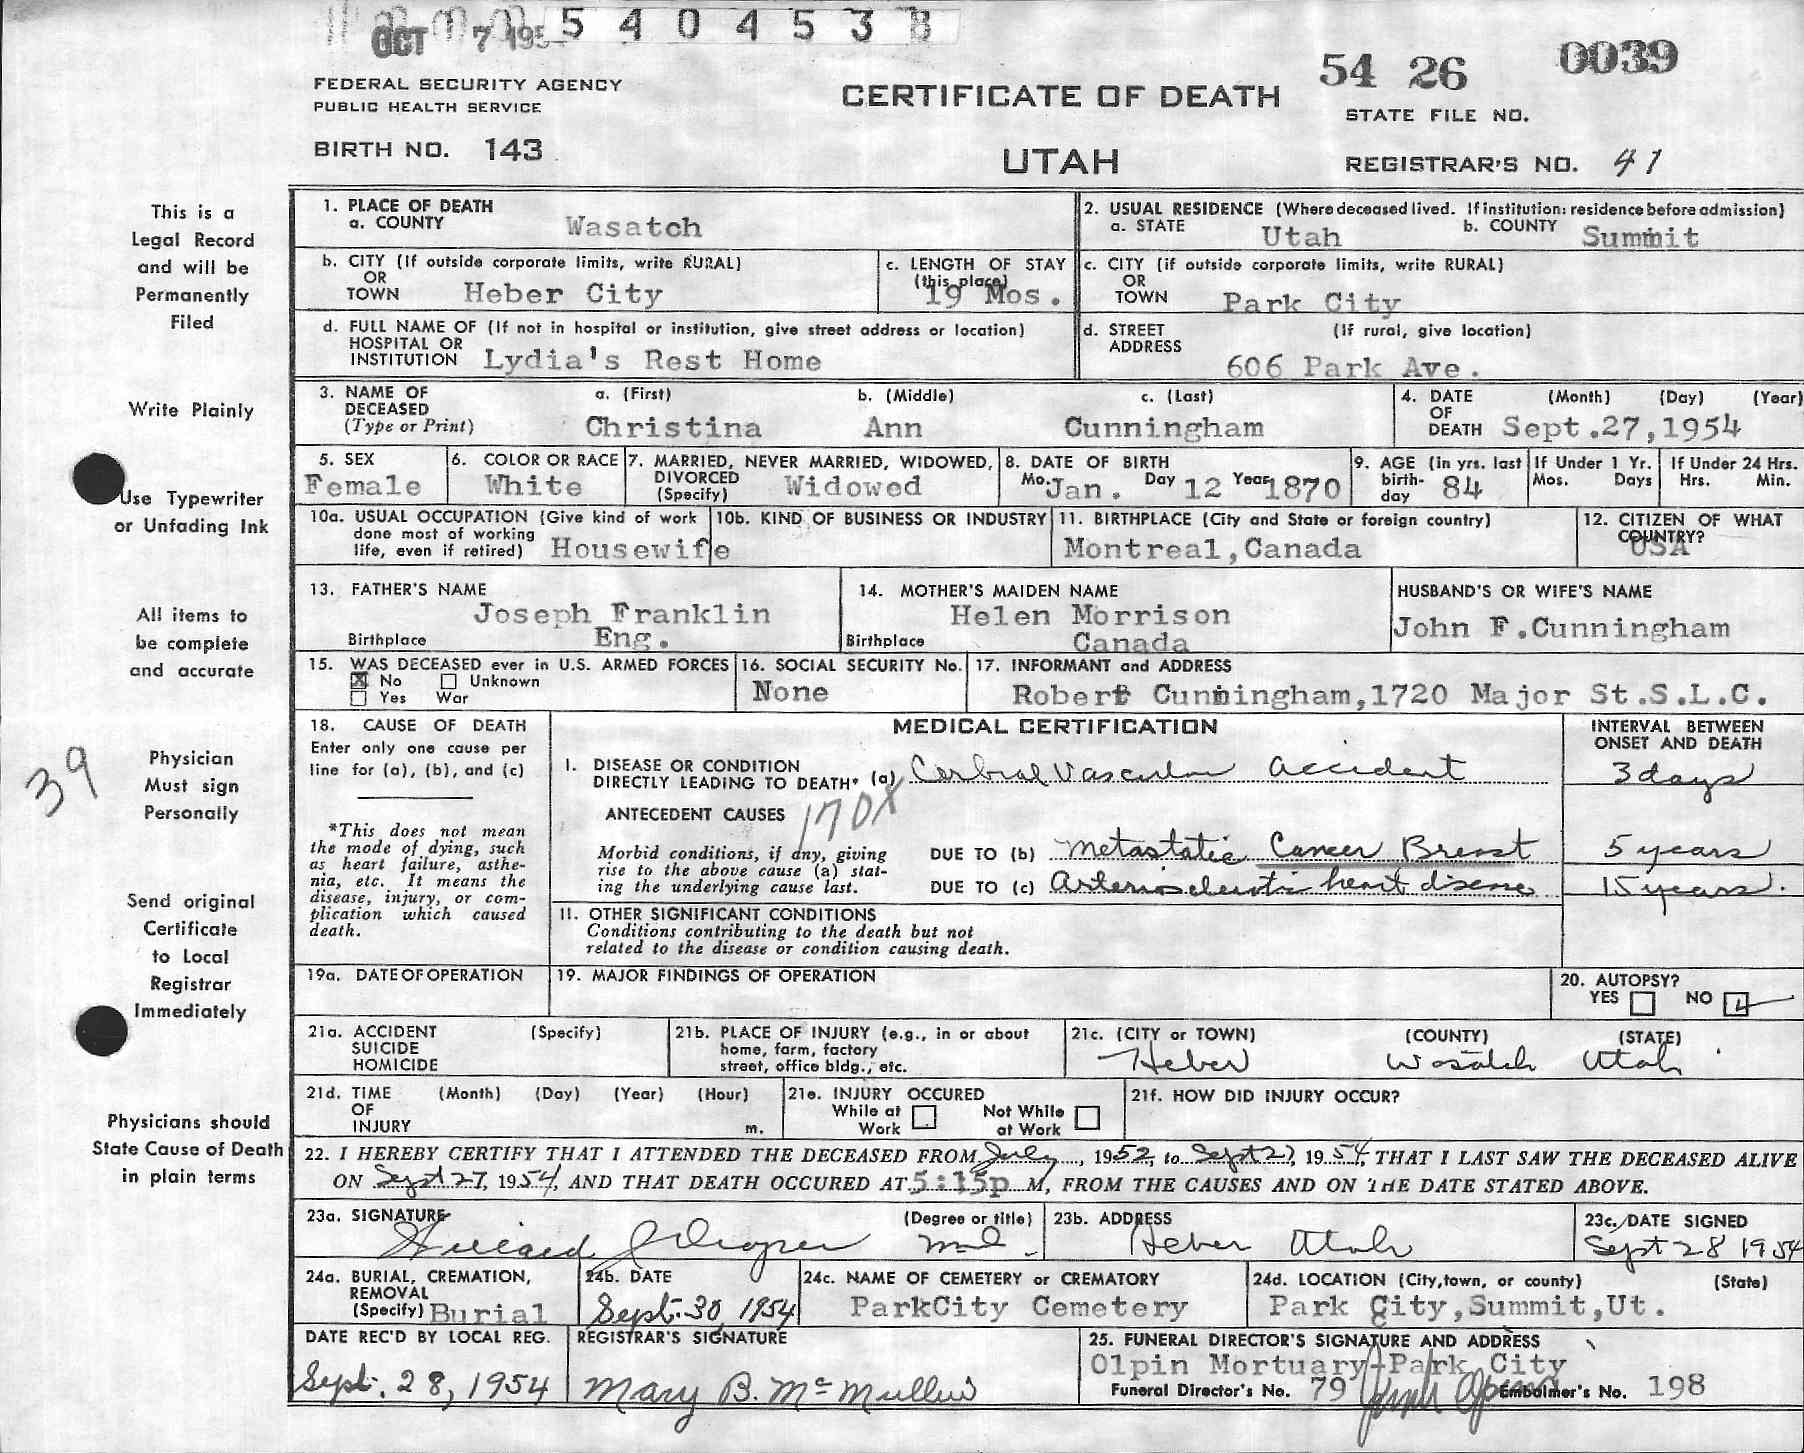 OCT 7 195 5 4 0 4 5 3 8
54 26 0039
FEDERAL SECURITY AGENCY
PUBLIC HEALTH SERVICE
CERTIFICATE OF DEATH
STATE FILE NO.
BIRTH NO. 143
UTAH
REGISTRAR'S NO. 41
This is a
Legal Record
and will be
Permanently
Filed
Write Plainly
Use Typewriter
or Unfading Ink
All items to
be complete
and accurate
39
Physician
Must sign
Personally
Send original
Certificate
to Local
Registrar
Immediately
Physicians should
State Cause of Death
in plain terms
1. PLACE OF DEATH
a. COUNTY Wasatch
2. USUAL RESIDENCE (Where deceased lived. If institution: residence before admission)
a. STATE Utah b. COUNTY Summit
b. CITY (If outside corporate limits, write RURAL)
OR
TOWN Heber City
c. LENGTH OF STAY
(this place)
19 Mos.
c. CITY (if outside corporate limits, write RURAL)
OR
TOWN Park City
d. FULL NAME OF (If not in hospital or institution, give street address or location)
HOSPITAL OR
INSTITUTION Lydia's Rest Home
d. STREET (If rural, give location)
ADDRESS
606 Park Ave.
3. NAME OF a. (First) b. (Middle) c. (Last)
DECEASED
(Type or Print) Christina Ann Cunningham
4. DATE (Month) (Day) (Year)
OF
DEATH Sept.27,1954
5. SEX
Female
6. COLOR OR RACE
White
7. MARRIED, NEVER MARRIED, WIDOWED,
DIVORCED
(Specify) Widowed
8. DATE OF BIRTH
Mo. Jan. Day 12 Year 1870
9. AGE (in yrs. last
birth-
day 84
If Under 1 Yr.
Mos. Days
If Under 24 Hrs.
Hrs. Min.
10a. USUAL OCCUPATION (Give kind of work
done most of working
life, even if retired) Housewife
10b. KIND OF BUSINESS OR INDUSTRY
11. BIRTHPLACE (City and State or foreign country)
Montreal,Canada
12. CITIZEN OF WHAT
COUNTRY?
USA
13. FATHER'S NAME
Joseph Franklin
Birthplace Eng.
14. MOTHER'S MAIDEN NAME
Helen Morrison
Birthplace Canada
HUSBAND'S OR WIFE'S NAME
John F.Cunningham
15. WAS DECEASED ever in U.S. ARMED FORCES
X No Unknown
Yes War
16. SOCIAL SECURITY No.
None
17. INFORMANT and ADDRESS
Robert Cunningham,1720 Major St.S.L.C.
18. CAUSE OF DEATH
Enter only one cause per
line for (a), (b), and (c)
*This does not mean
the mode of dying, such
as heart failure, asthe-
nia, etc. It means the
disease, injury, or com-
plication which caused
death.
MEDICAL CERTIFICATION
INTERVAL BETWEEN
ONSET AND DEATH
I. DISEASE OR CONDITION
DIRECTLY LEADING TO DEATH* (a) Cerbral Vascular accident 3 days
ANTECEDENT CAUSES 170X
Morbid conditions, if any, giving
rise to the above cause (a) stat-
ing the underlying cause last.
DUE TO (b) Metastatic Cancer Breast 5 years
DUE TO (c) Arteriosclerotic heart disease 15 years.
II. OTHER SIGNIFICANT CONDITIONS
Conditions contributing to the death but not
related to the disease or condition causing death.
19a. DATE OF OPERATION
19. MAJOR FINDINGS OF OPERATION
20. AUTOPSY?
YES NO
21a. ACCIDENT (Specify)
SUICIDE
HOMICIDE
21b. PLACE OF INJURY (e.g., in or about
home, farm, factory
street, office bldg., etc.
21c. (CITY or TOWN) (COUNTY) (STATE)
Heber Wasatch Utah
21d. TIME (Month) (Day) (Year) (Hour)
OF
INJURY m.
21e. INJURY OCCURED
While at Not While
Work at Work
21f. HOW DID INJURY OCCUR?
22. I HEREBY CERTIFY THAT I ATTENDED THE DECEASED FROM July, 1952, to Sept 27, 1954, THAT I LAST SAW THE DECEASED ALIVE
ON Sept 27, 1954, AND THAT DEATH OCCURED AT 5:15p M, FROM THE CAUSES AND ON THE DATE STATED ABOVE.
23a. SIGNATURE (Degree or title)
md
23b. ADDRESS
Heber Utah
23c. DATE SIGNED
Sept 28 1954
24a. BURIAL, CREMATION,
REMOVAL
(Specify) Burial
24b. DATE
Sept. 30, 1954
24c. NAME OF CEMETERY or CREMATORY
ParkCity Cemetery
24d. LOCATION (City, town, or county) (State)
Park City,Summit,Ut.
DATE REC'D BY LOCAL REG.
Sept. 28, 1954
REGISTRAR'S SIGNATURE
Mary B. McMullin
25. FUNERAL DIRECTOR'S SIGNATURE AND ADDRESS
Olpin Mortuary-Park City
Funeral Director's No. 79 Embalmer's No. 198